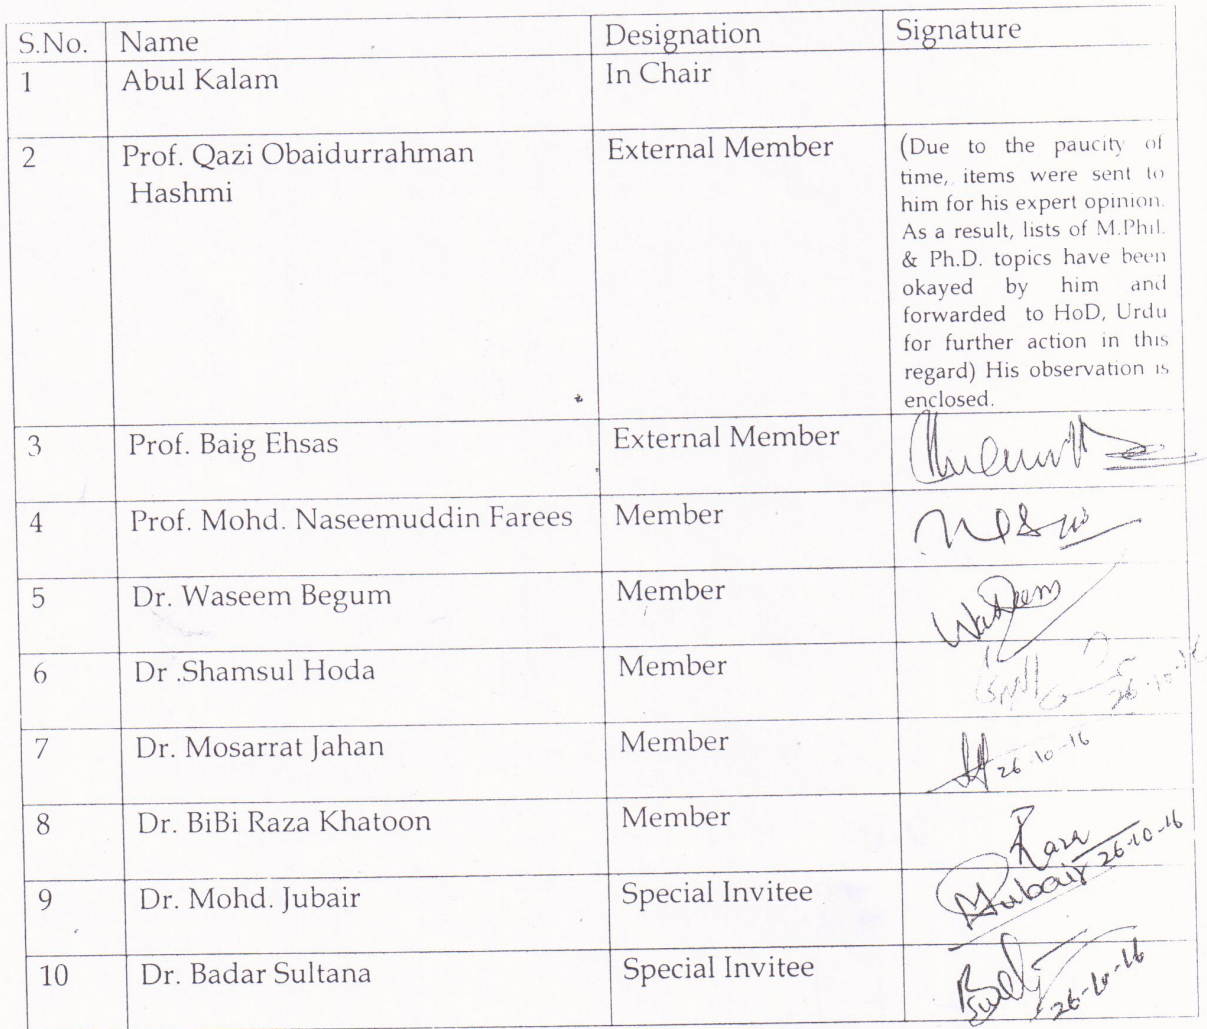 S.No. Name Designation Signature
1 Abul Kalam In Chair
2 Prof. Qazi Obaidurrahman External Member
Hashmi
(Due to the paucity of
time, items were sent to
him for his expert opinion.
As a result, lists of M.Phil.
& Ph.D. topics have been
okayed by him and
forwarded to HoD, Urdu
for further action in this
regard) His observation is
enclosed.
3 Prof. Baig Ehsas External Member
4 Prof. Mohd. Naseemuddin Farees Member
5 Dr. Waseem Begum Member Waseem
6 Dr .Shamsul Hoda Member 26-10-16
7 Dr. Mosarrat Jahan Member 26-10-16
8 Dr. BiBi Raza Khatoon Member Raza 26-10-16
9 Dr. Mohd. Jubair Special Invitee
10 Dr. Badar Sultana Special Invitee 26-10-16